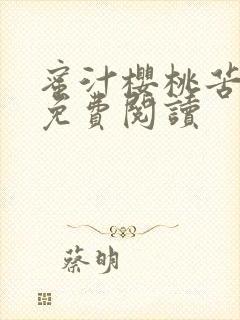 蜜汁櫻桃苦
免費閱讀
蔡明